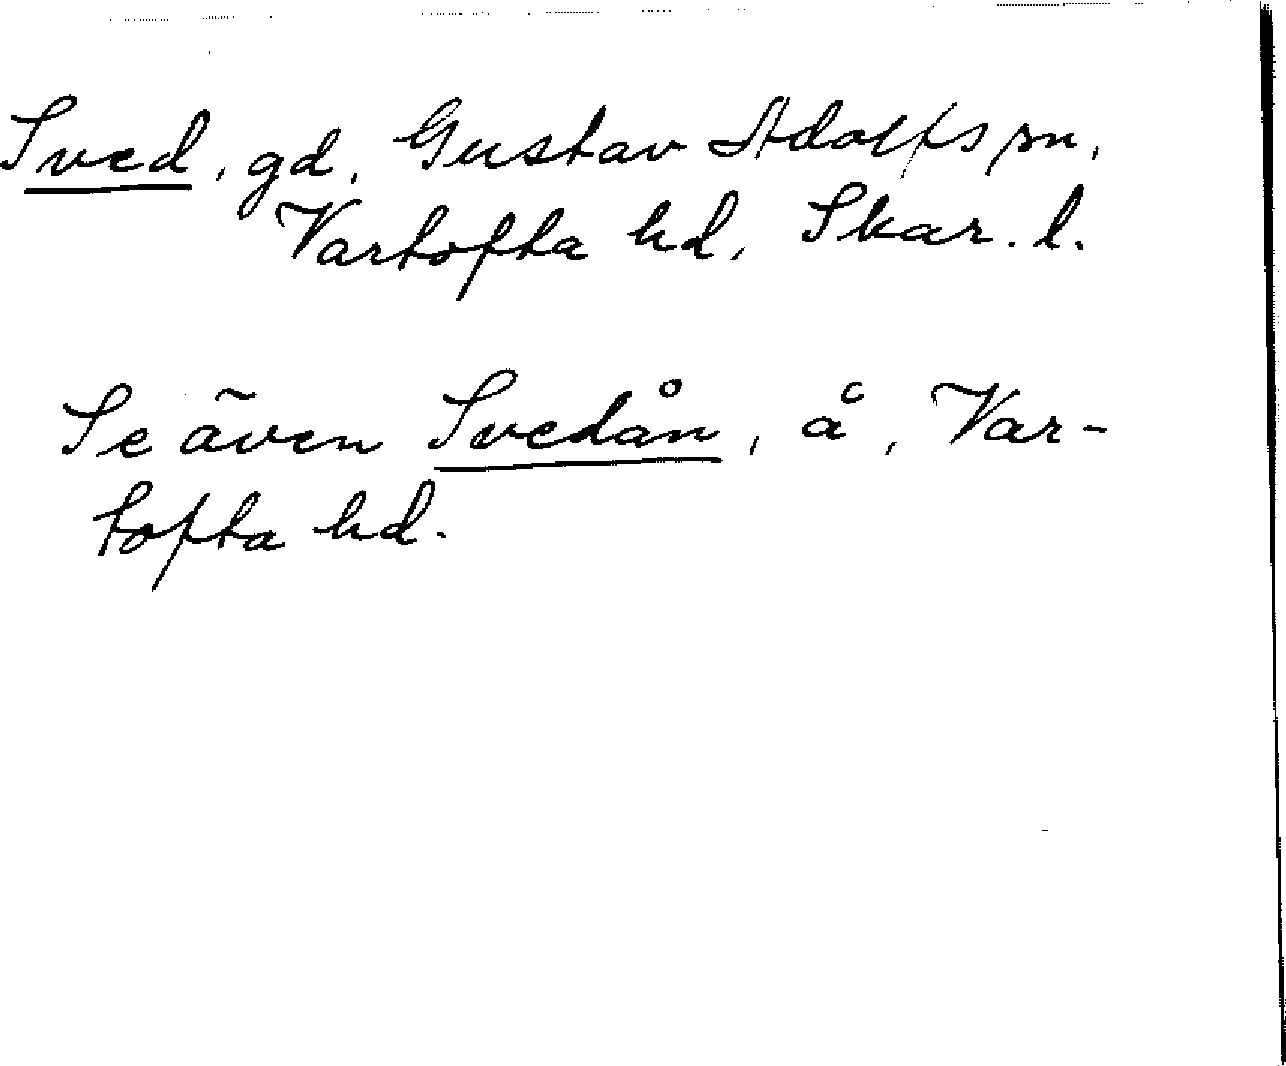 Sved, gd, Gustav Adolfs sn,
Vartofta hd, Skar. l.
Se även Svedån, å, Var-
tofta hd.